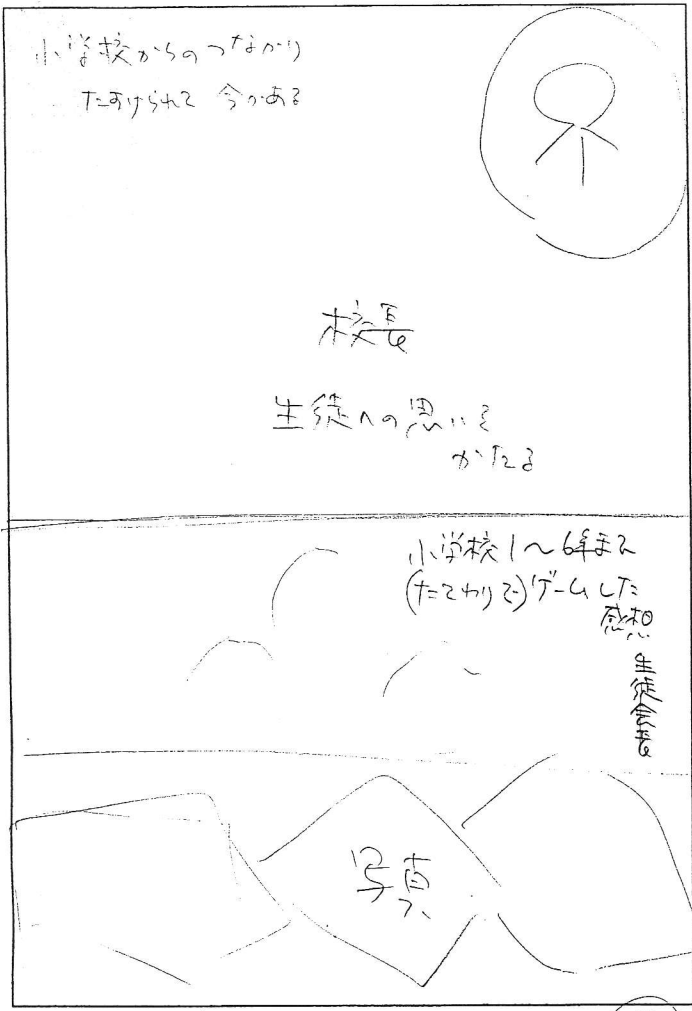 小学校からのつながり
たすけられて 今がある
校長
生徒への思いを
かたる
小学校1〜6年まで
(たてわりで)ゲームした
感想
生徒会長
写真